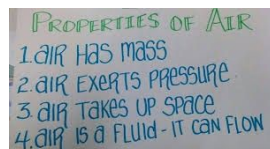 PROPERTIES OF AIR
1. aIR Has mass
2. aIR EXERTS PRESSURE.
3. aIR TaKES UP SPaCE
4. aIR IS a FLUID - IT Can FLOW